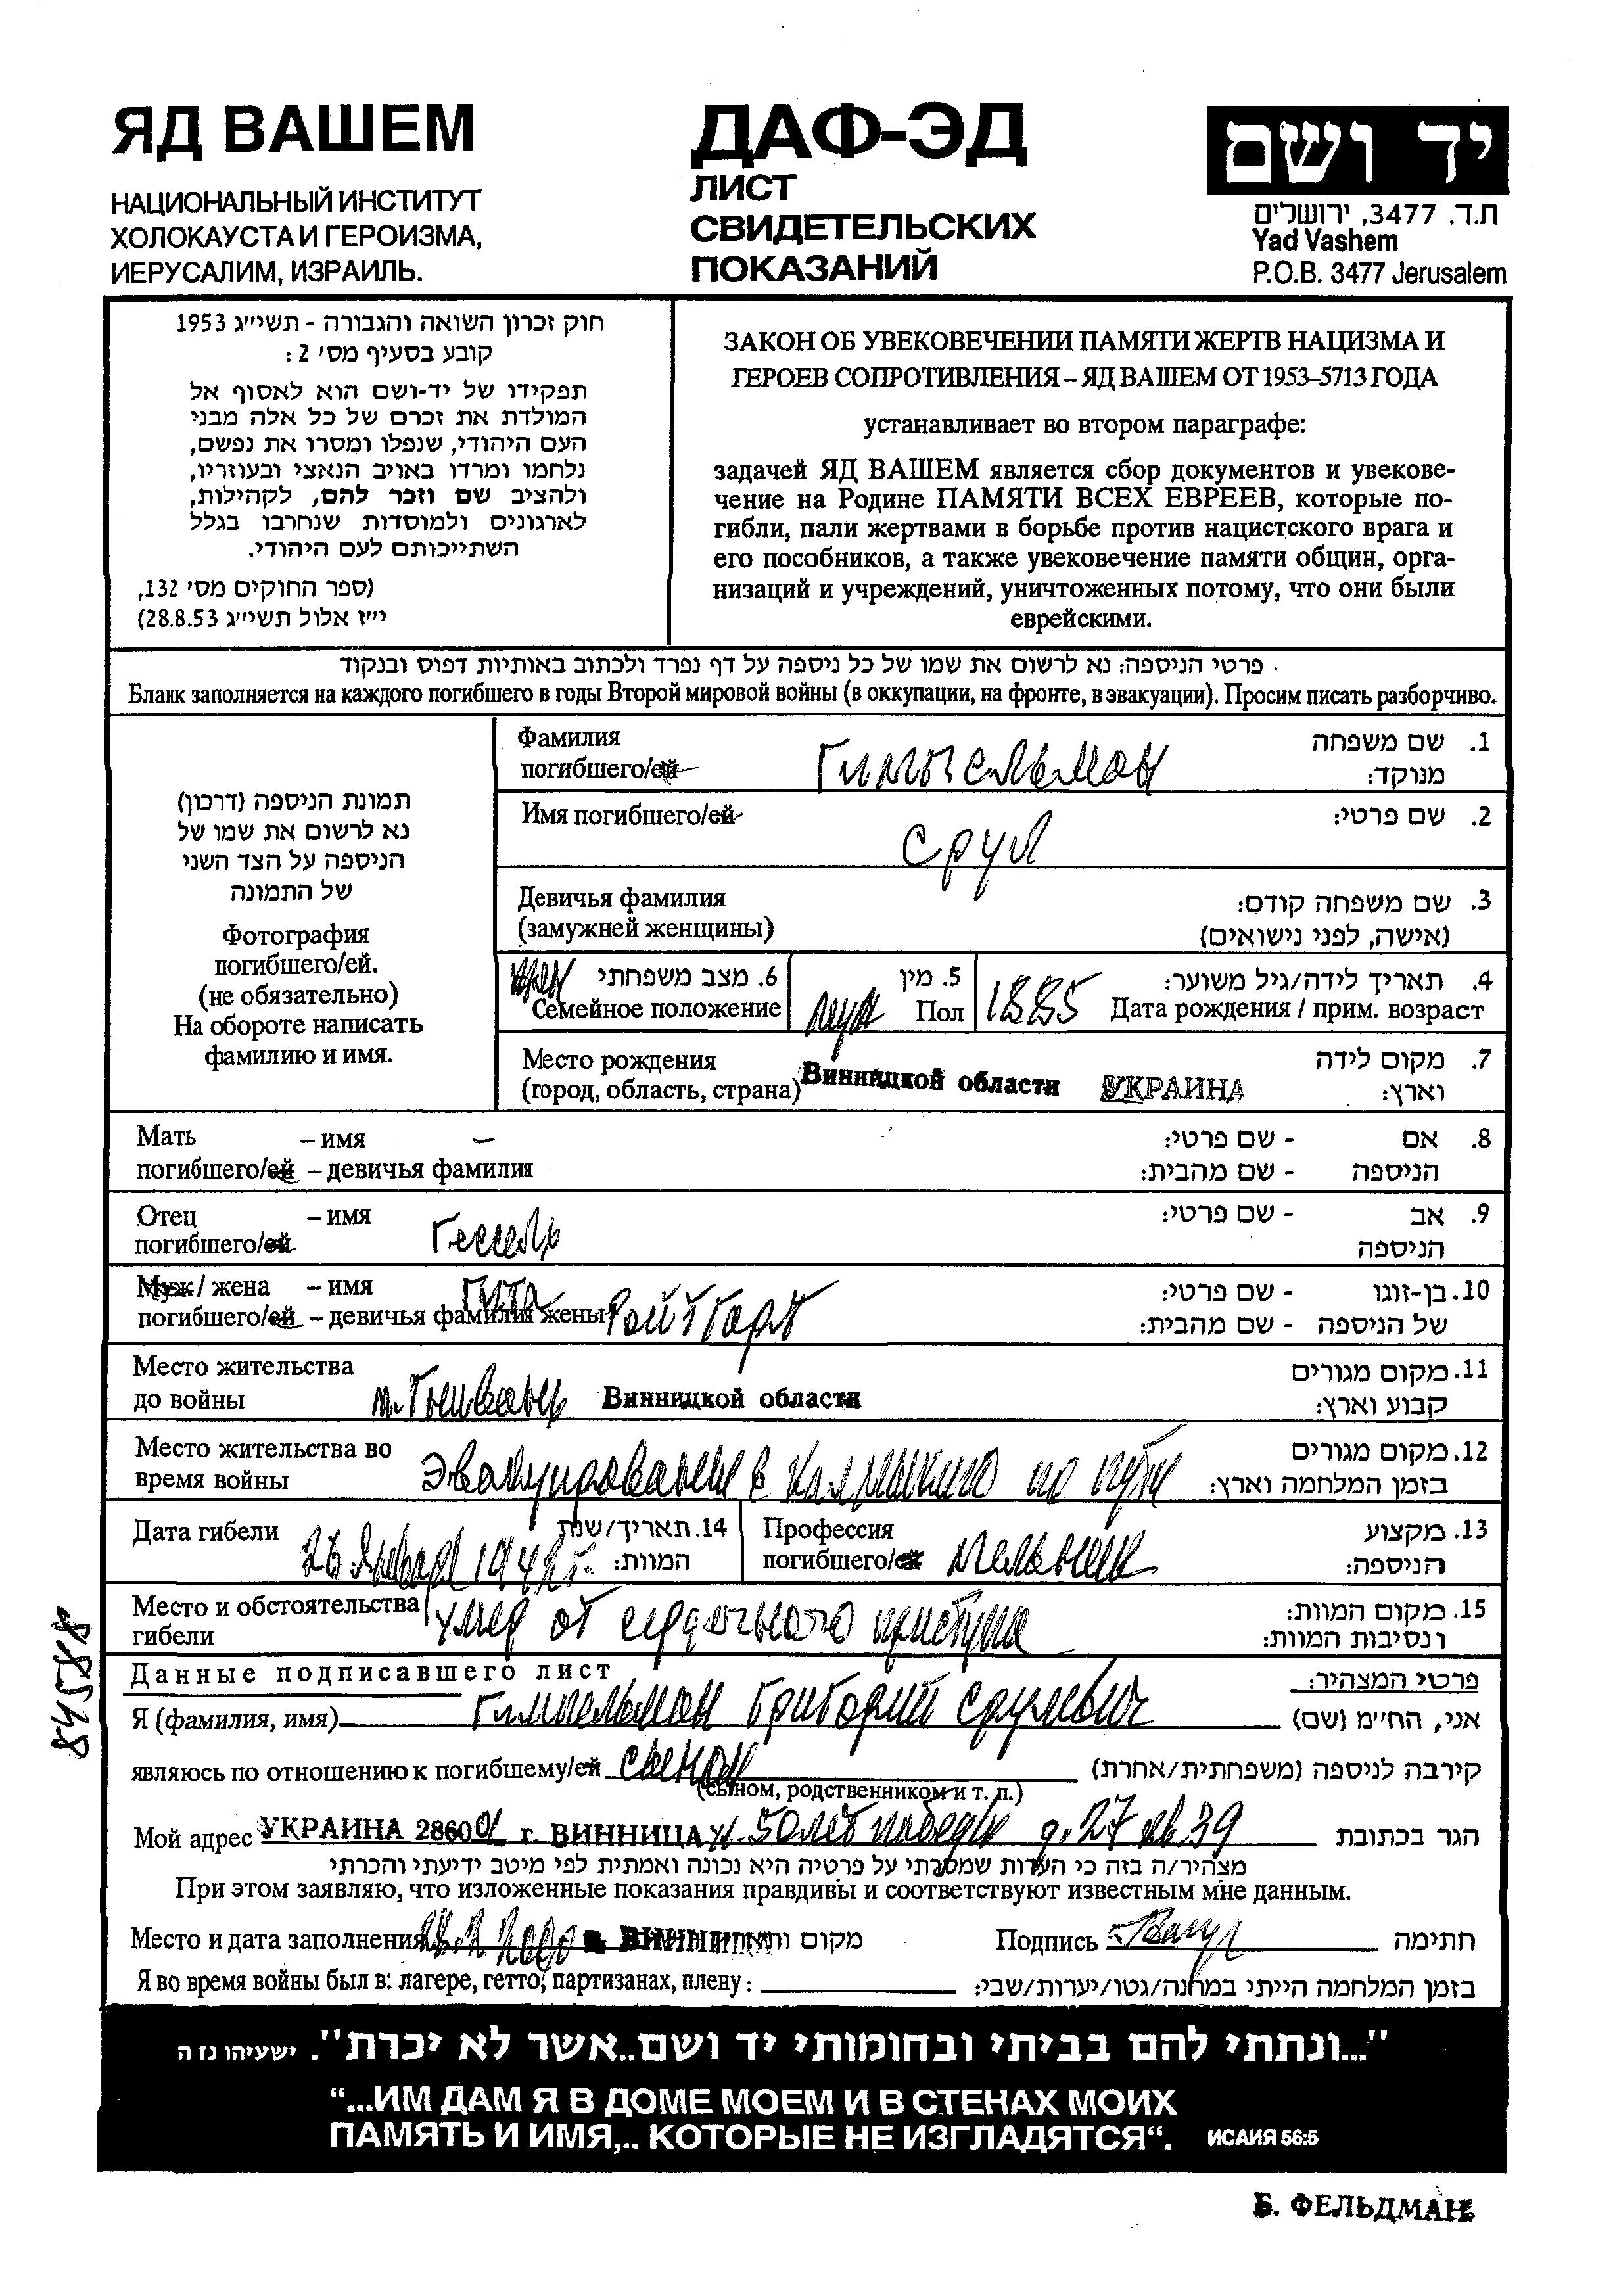 ЯД ВАШЕМ
НАЦИОНАЛЬНЫЙ ИНСТИТУТ
ХОЛОКАУСТА И ГЕРОИЗМА,
ИЕРУСАЛИМ, ИЗРАИЛЬ.
ДАФ-ЭД
ЛИСТ
СВИДЕТЕЛЬСКИХ
ПОКАЗАНИЙ
יד ושם
ת.ד. 3477, ירושלים
Yad Vashem
P.O.B. 3477 Jerusalem
חוק זכרון השואה והגבורה - תשי״ג 1953
קובע בסעיף מס׳ 2:
תפקידו של יד-ושם הוא לאסוף אל
המולדת את זכרם של כל אלה מבני
העם היהודי, שנפלו ומסרו את נפשם,
נלחמו ומרדו באויב הנאצי ובעוזריו,
ולהציב שם וזכר להם, לקהילות,
לארגונים ולמוסדות שנחרבו בגלל
השתייכותם לעם היהודי.
(ספר החוקים מס׳ 132,
י״ז אלול תשי״ג 28.8.53)
ЗАКОН ОБ УВЕКОВЕЧЕНИИ ПАМЯТИ ЖЕРТВ НАЦИЗМА И
ГЕРОЕВ СОПРОТИВЛЕНИЯ – ЯД ВАШЕМ ОТ 1953–5713 ГОДА
устанавливает во втором параграфе:
задачей ЯД ВАШЕМ является сбор документов и увекове-
чение на Родине ПАМЯТИ ВСЕХ ЕВРЕЕВ, которые по-
гибли, пали жертвами в борьбе против нацистского врага и
его пособников, а также увековечение памяти общин, орга-
низаций и учреждений, уничтоженных потому, что они были
еврейскими.
פרטי הניספה: נא לרשום את שמו של כל ניספה על דף נפרד ולכתוב באותיות דפוס ובנקוד
Бланк заполняется на каждого погибшего в годы Второй мировой войны (в оккупации, на фронте, в эвакуации). Просим писать разборчиво.
תמונת הניספה (דרכון)
נא לרשום את שמו של
הניספה על הצד השני
של התמונה
Фотография
погибшего/ей.
(не обязательно)
На обороте написать
фамилию и имя.
Фамилия
погибшего/ей Гимпельман
1. שם משפחה
מנוקד:
Имя погибшего/ей Срул
2. שם פרטי:
Девичья фамилия
(замужней женщины)
3. שם משפחה קודם:
(אישה, לפני נישואים)
жен 6. מצב משפחתי
Семейное положение
муж 5. מין
Пол
1885 4. תאריך לידה/גיל משוער:
Дата рождения / прим. возраст
Место рождения
(город, область, страна) Винницкой области УКРАИНА
7. מקום לידה
וארץ:
Мать – имя –
погибшего/ей – девичья фамилия
8. אם - שם פרטי:
הניספה - שם מהבית:
Отец – имя
погибшего/ей
9. אב - שם פרטי:
הניספה
Муж / жена – имя Гита
погибшего/ей – девичья фамилия жены Ройтбарт
10. בן-זוגו - שם פרטי:
של הניספה - שם מהבית:
Место жительства
до войны м. Гнивань Винницкой области
11. מקום מגורים
קבוע וארץ:
Место жительства во
время войны Эвакуирование в Калмыкию по пути
12. מקום מגורים
בזמן המלחמה וארץ:
Дата гибели 26 января 1942 г.
14. תאריך/שנת
המוות:
Профессия
погибшего/ей мельник
13. מקצוע
הניספה:
Место и обстоятельства
гибели умер от сердечного приступа
15. מקום המוות:
ונסיבות המוות:
Данные подписавшего лист
פרטי המצהיר:
Я (фамилия, имя) Гимпельман Григорий Срулевич אני, הח״מ (שם)
являюсь по отношению к погибшему/ей сыном קירבה לניספה (משפחתית/אחרת)
(сыном, родственником и т. п.)
Мой адрес УКРАИНА 28600 г. ВИННИЦА ул. 50 лет победы д. 27 кв. 39 הגר בכתובת
מצהיר/ה בזה כי העדות שמסרתי על פרטיה היא נכונה ואמתית לפי מיטב ידיעתי והכרתי
При этом заявляю, что изложенные показания правдивы и соответствуют известным мне данным.
Место и дата заполнения 2000 г. ВИННИЦА מקום
Подпись חתימה
Я во время войны был в: лагере, гетто, партизанах, плену: בזמן המלחמה הייתי במחנה/גטו/יערות/שבי:
"...ונתתי להם בביתי ובחומותי יד ושם..אשר לא יכרת". ישעיהו נז ה
“...ИМ ДАМ Я В ДОМЕ МОЕМ И В СТЕНАХ МОИХ
ПАМЯТЬ И ИМЯ,.. КОТОРЫЕ НЕ ИЗГЛАДЯТСЯ“. ИСАИЯ 56:5
Б. ФЕЛЬДМАН